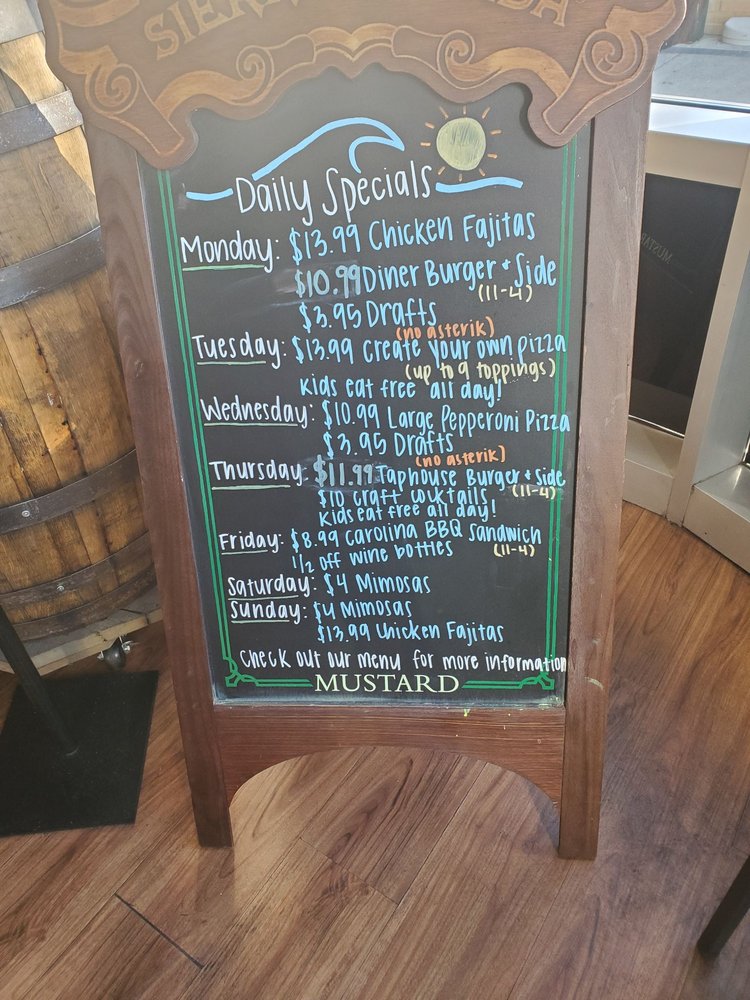 SIER DA
Daily Specials
Monday: $13.99 Chicken Fajitas
$10.99 Diner Burger + Side
(11-4)
$3.95 Drafts
(no asterik)
Tuesday: $13.99 Create your own pizza
(up to 9 toppings)
Kids eat free all day!
Wednesday: $10.99 Large Pepperoni Pizza
$3.95 Drafts
(no asterik)
Thursday: $11.99 Taphouse Burger + Side
$10 Craft Cocktails (11-4)
Kids eat free all day!
Friday: $8.99 Carolina BBQ Sandwich
1/2 off wine bottles (11-4)
Saturday: $4 Mimosas
Sunday: $4 Mimosas
$13.99 Chicken Fajitas
Check out our menu for more information
MUSTARD